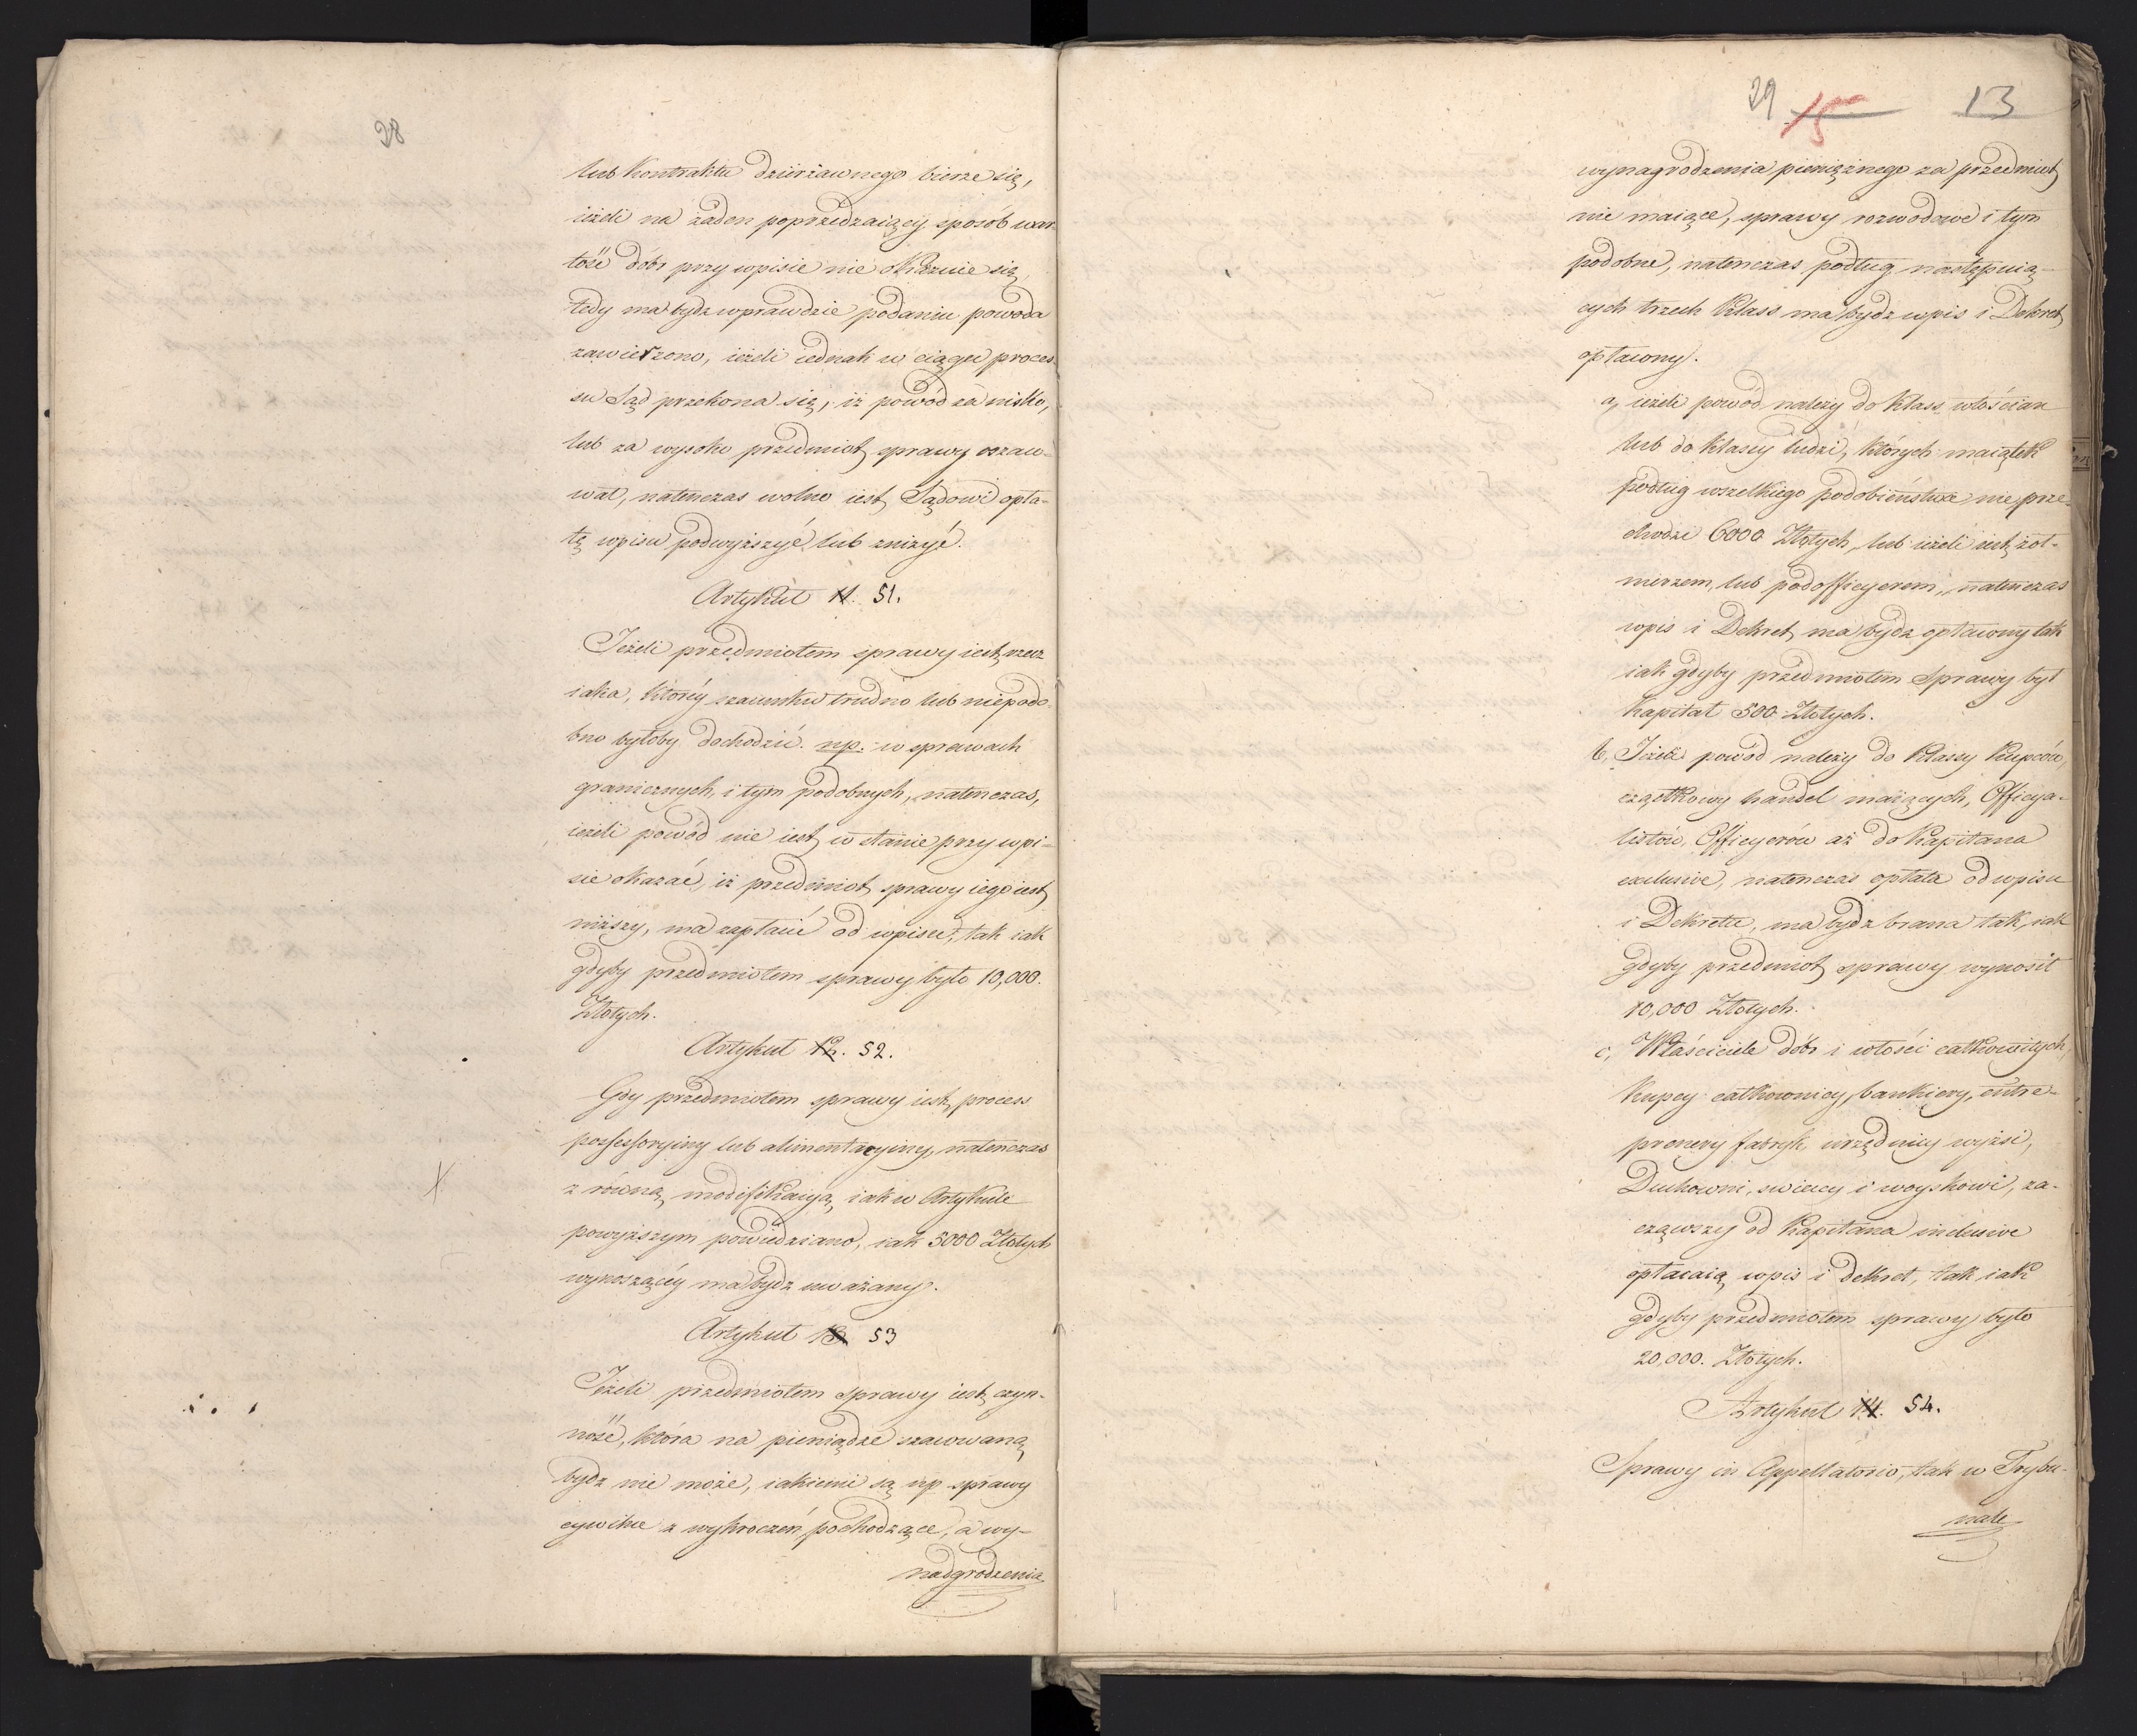 28
lub Kontraktu dzierżawnego bierze się,
ieżeli na żaden poprzedzaiący sposób war-
tość dóbr przy wpisie nie okazuie się,
tedy ma bydz wprawdzie podaniu powoda
zawierzono, ieżeli iednak w ciągu proces-
su Sąd przekona się, iż powód za nisko,
lub za wysoko przedmiot sprawy oszaco-
wał, natenczas wolno iest Sądowi opła-
tę wpisu podwyższyć lub zniżyć.
Artykuł 11. 51.
Jeżeli przedmiotem sprawy iest rzecz
iaka, któréy szacunku trudno lub niepodo-
bno byłoby dochodzić. np. w sprawach
granicznych, i tym podobnych, natenczas,
ieżeli powód nie iest w stanie przy wpi-
sie okazać, iż przedmiot sprawy iego iest
niższy, ma zapłacić od wpisu, tak iak
gdyby przedmiotem sprawy było 10,000.
Złotych.
Artykuł 12. 52.
Gdy przedmiotem sprawy iest process
possessoryiny lub alimentacyiny, natenczas
z równą modifikacyą iak w Artykule
powyższym powiedziano, iak 5000 Złotych
wynoszącéy ma bydz uważany.
Artykuł 13 53
Jeżeli przedmiotem sprawy iest czyn-
ność, która na pieniądze szacowaną
bydz nie może, iakiemi są np sprawy
cywilne z wykroczeń pochodzące, a wy-
nadgrodzenia
29 15 13
wynagrodzenia pieniężnego za przedmiot
nie maiące, sprawy rozwodowe i tym
podobne, natenczas podług następuią-
cych trzech Klass ma bydz wpis i Dekret
opłacony.
a, ieżeli powód należy do Klass włościan
lub do klassy ludzi, których maiątek
podług wszelkiego podobieństwa nie prze-
chodzi 6000 Złotych, lub ieżeli iest żoł-
nierzem, lub podofficyerem, natenczas
wpis i Dekret ma bydz opłacony tak
iak gdyby przedmiotem Sprawy był
Kapitał 500 Złotych.
b, Jeżeli powód należy do Klassy Kupców,
cząstkowy handel maiących, Officya-
listów, Officyerów aż do Kapitana
exclusive, natenczas opłata od wpisu
i Dekretu, ma bydz brana tak, iak
gdyby przedmiot sprawy wynosił
10,000 Złotych.
c, Właściciele dóbr i włości całkowitych,
Kupcy całkownicy, bankiery, entre-
prenery fabryk, urzędnicy wyżsi,
Duchowni, swieccy i woyskowi, za-
cząwszy od Kapitana inclusive
opłacaią wpis i dekret, tak iak
gdyby przedmiotem sprawy było
20,000. Złotych.
Artykuł 14. 54.
Sprawy in Appellatorio, tak w Trybu-
nale